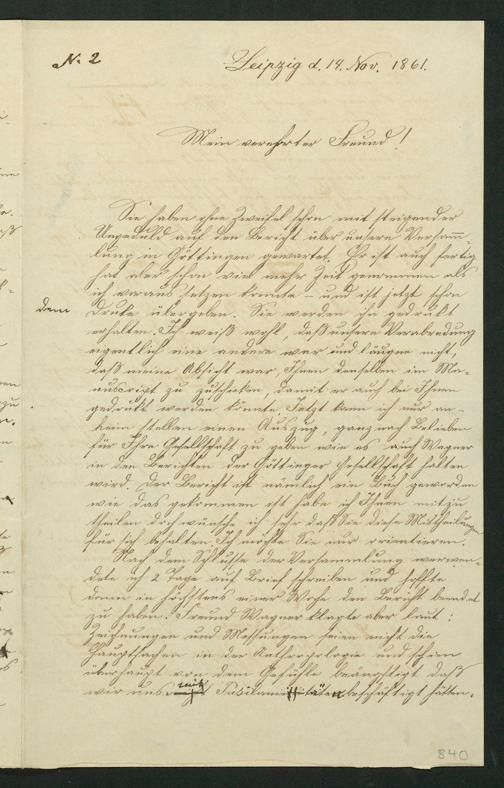 N. 2
Leipzig d. 14. Nov. 1861.
Mein verehrter Freund!
Sie haben ohne Zweifel schon mit steigender
Ungeduld auf den Bericht über unsere Versamm-
lung in Göttingen gewartet. Er ist auch fertig
hat aber schon viel mehr Zeit genommen als
ich voraus setzen konnte – und ist jetzt schon
dem
Drucke übergeben. Sie werden ihn gedruckt
erhalten. Ich weiß wohl, daß unsere Verabredung
eigentlich eine andere war und läugne nicht,
daß meine Absicht war, Ihnen denselben im Ma-
nuscript zu zuschicken, damit er auch bei Ihnen
gedruckt werden könnte. Jetzt kann ich nur an-
heim stellen einen Auszug, ganz nach Belieben
für Ihre Gesellschaft zu geben wie es auch Wagner
in den Berichten der Göttinger Gesellschaft halten
wird. Der Bericht ist nämlich ein Buch geworden
wie das gekommen ist habe ich Ihnen mitzu
theilen doch wünsche ich sehr daß Sie diese Mittheilungen
für sich behalten. Ich möchte Sie nur orientiren.
Nach dem Schlusse der Versammlung verwen-
dete ich 2 Tage auf Brief schreiben und hoffte
dann in höchstens einer Woche den Bericht beendet
zu haben. Freund Wagner klagte aber laut:
Zeichnungen und Messungen seien nicht die
Hauptsachen in der Anthropologie und schien
überhaupt von dem Gefühle beängstigt daß
wir uns mit beschäftigt hätten.
840